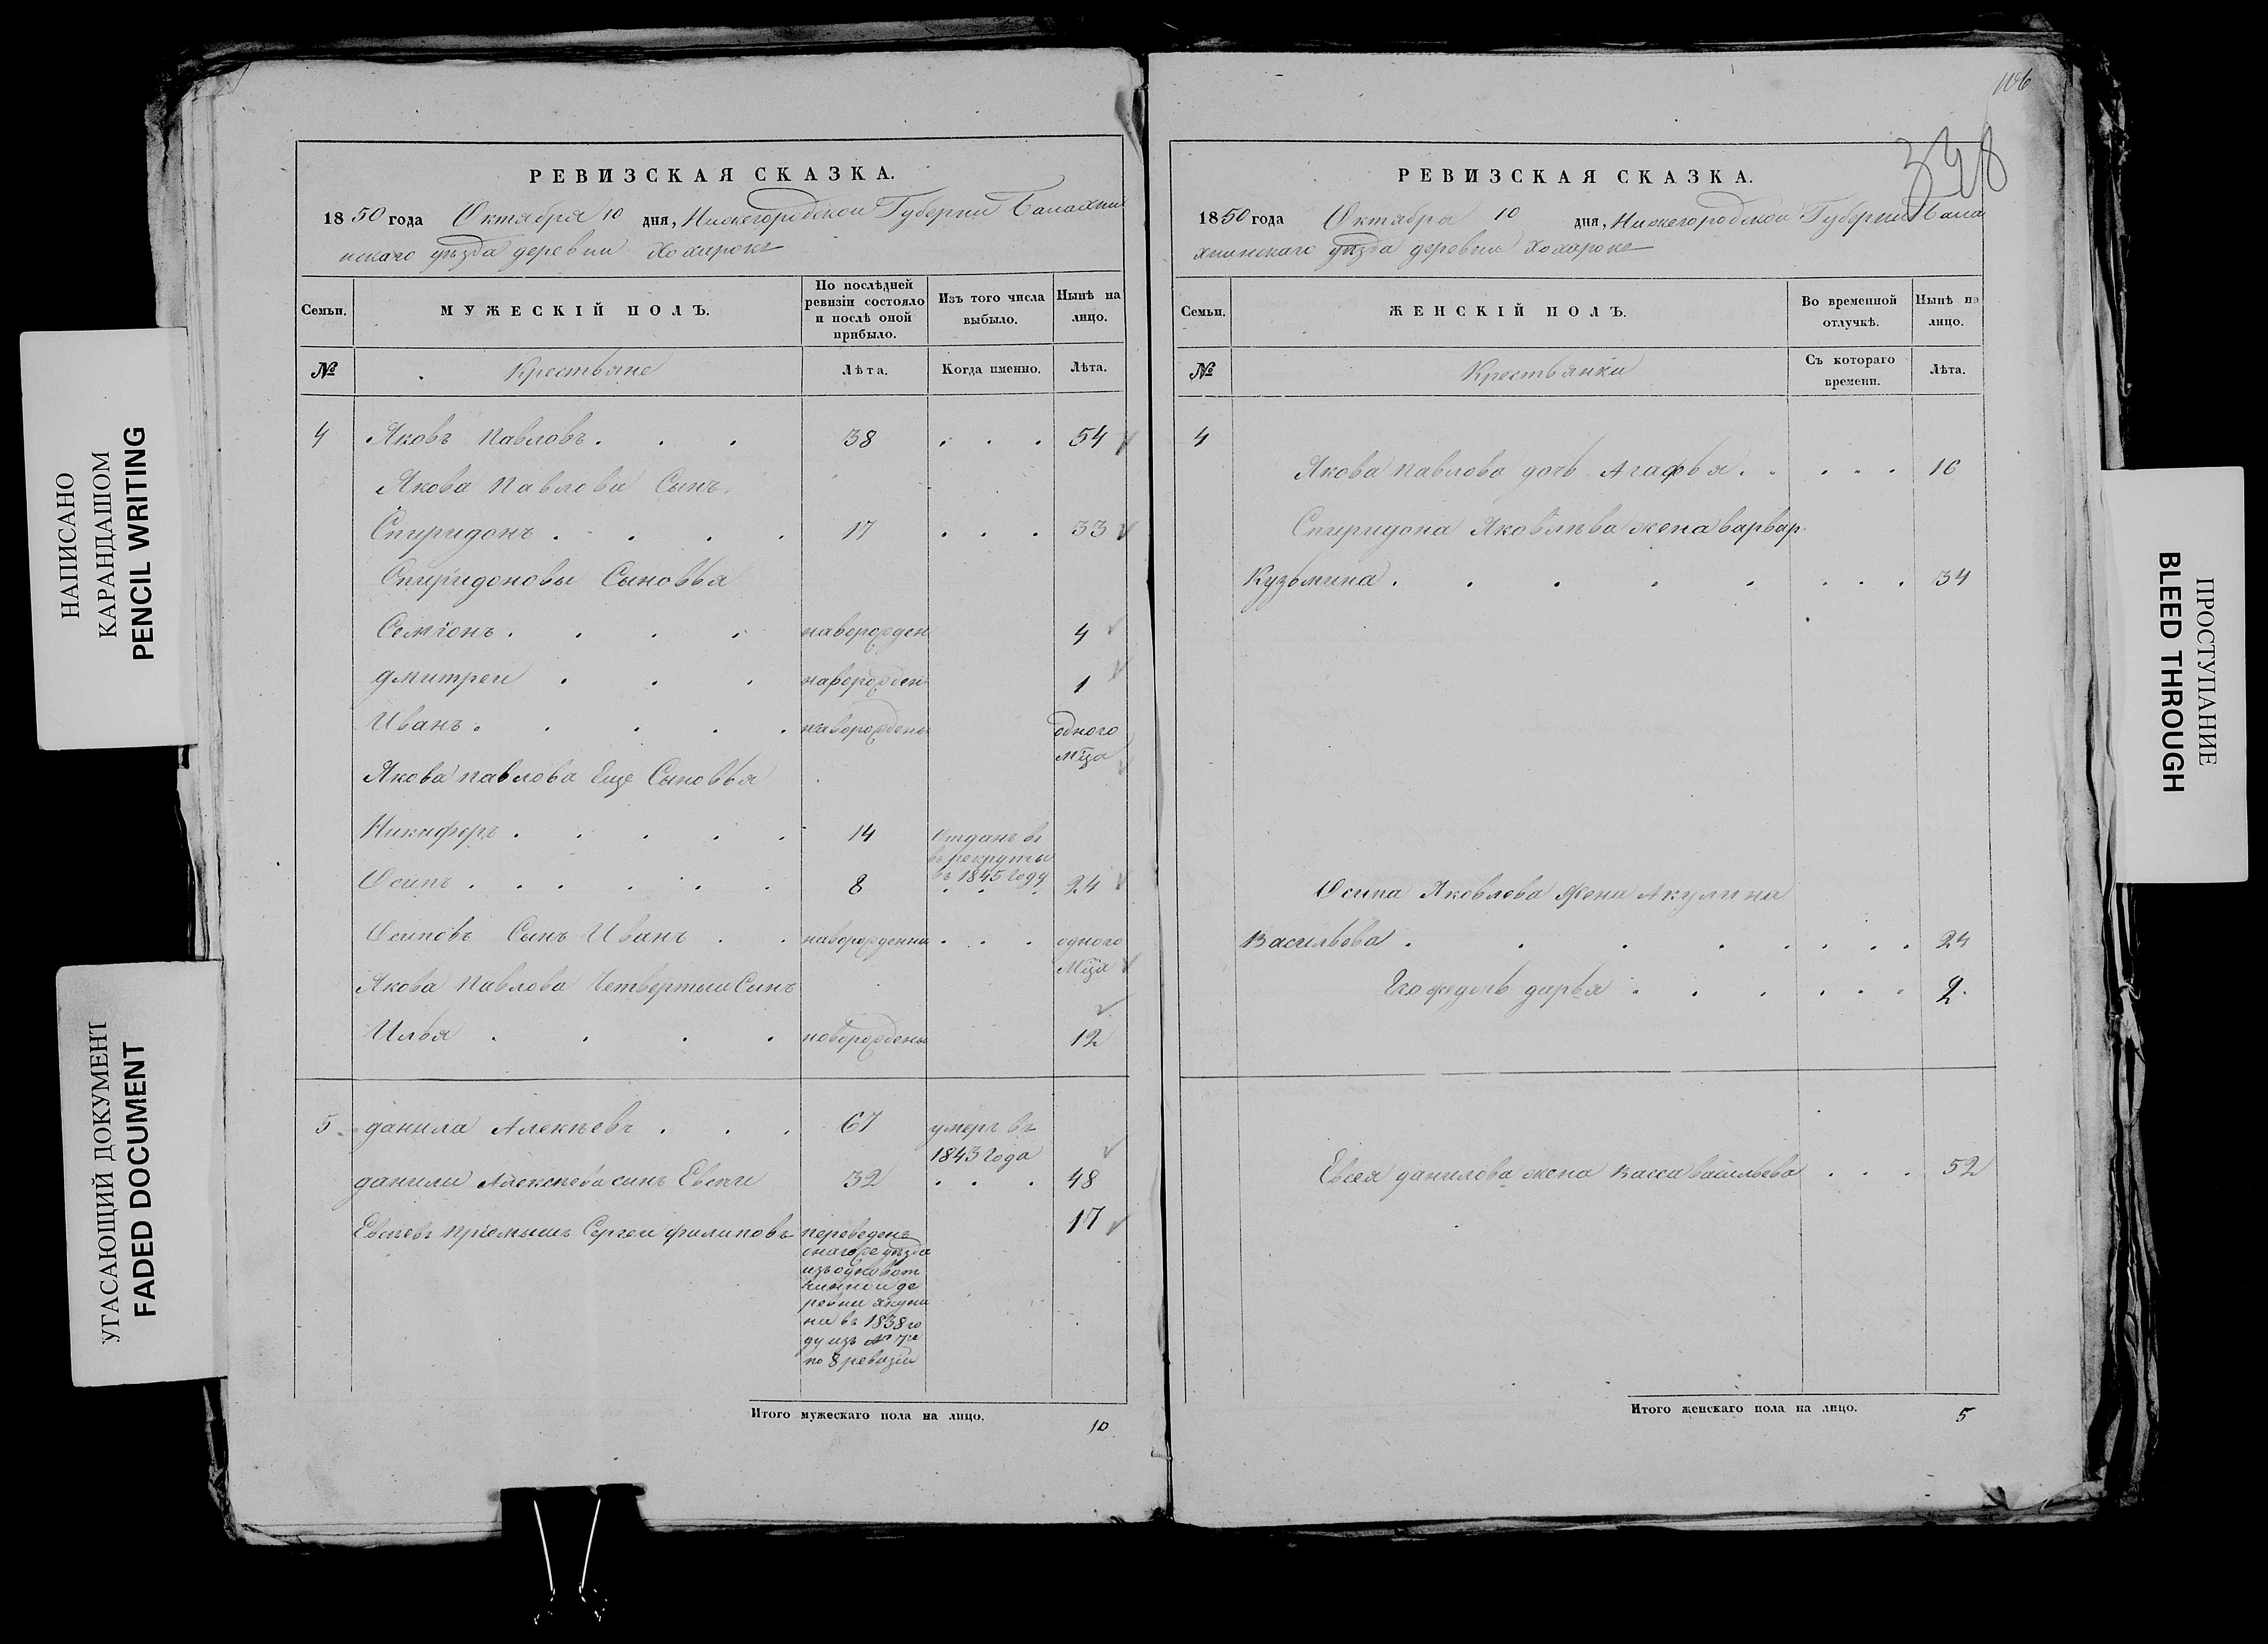 106
338
РЕВИЗСКАЯ СКАЗКА.
1850 года Октября 10 дня, Нижегородской Губерни Балахни
нскаго уѣзда деревни
Семьи.
МУЖЕСКІЙ ПОЛЪ.
По послѣдней ревизіи состояло и послѣ оной прибыло.
Изъ того числа выбыло.
Нынѣ на лицо.
№
Крестьяне
Лѣта.
Когда именно.
Лѣта.
4 Яковъ Павловъ . . . 38 . . . 54
Якова Павлова Сынъ
Спиридонъ . . . . 17 . . . 33
Спиридоновы Сыновья
Семіонъ . . . . наворожден 4
дмитреи . . . наворожден 1
Иванъ . . . . . наворождены одного
мца
Якова павлова Еще Сыновья
Никифоръ . . . . . 14 Отданъ въ
въ рекруты
въ 1845 году
Осипъ . . . . . . 8 . . . 24
Осиповъ Сынъ Иванъ . . наворожденны . . . одного
мца
Якова Павлова Четвертыи Сынъ
Илья . . . . новорождены 12
5 данила Алекѣевъ . . . 67 умеръ въ
1843 года
данилы Алексѣева сынъ Евсѣи 32 . . . 48
Евсѣевъ пріемышъ Сергеи филиповъ переведенъ 17
онагоже уѣзда
изъ одновот
чинной де
ревни
ни въ 1838 го
ду изъ № 7го
по 8 ревизіи
Итого мужескаго пола на лицо. 10
РЕВИЗСКАЯ СКАЗКА.
1850 года Октября 10 дня, Нижегородской Губерни Бала
хнинскаго уѣзда деревни
Семьи.
ЖЕНСКІЙ ПОЛЪ.
Во временной отлучкѣ.
Нынѣ на лицо.
№
Крестьянки
Съ котораго времени.
Лѣта.
4
Якова павлова дочь Агафья . . . . . 16
Спиридона Яковлѣва жена варвар
Кузьмина . . . . . . . . 34
Осипа Яковлева жена Акулина
Васильева . . . . . . . . . 24
Его же дочь дарья . . . . . . 2
Евсея данилова жена Васса васильева . . . 52
Итого женскаго пола на лицо. 5
НАПИСАНО
КАРАНДАШОМ
PENCIL WRITING
УГАСАЮЩИЙ ДОКУМЕНТ
FADED DOCUMENT
ПРОСТУПАНИЕ
BLEED THROUGH